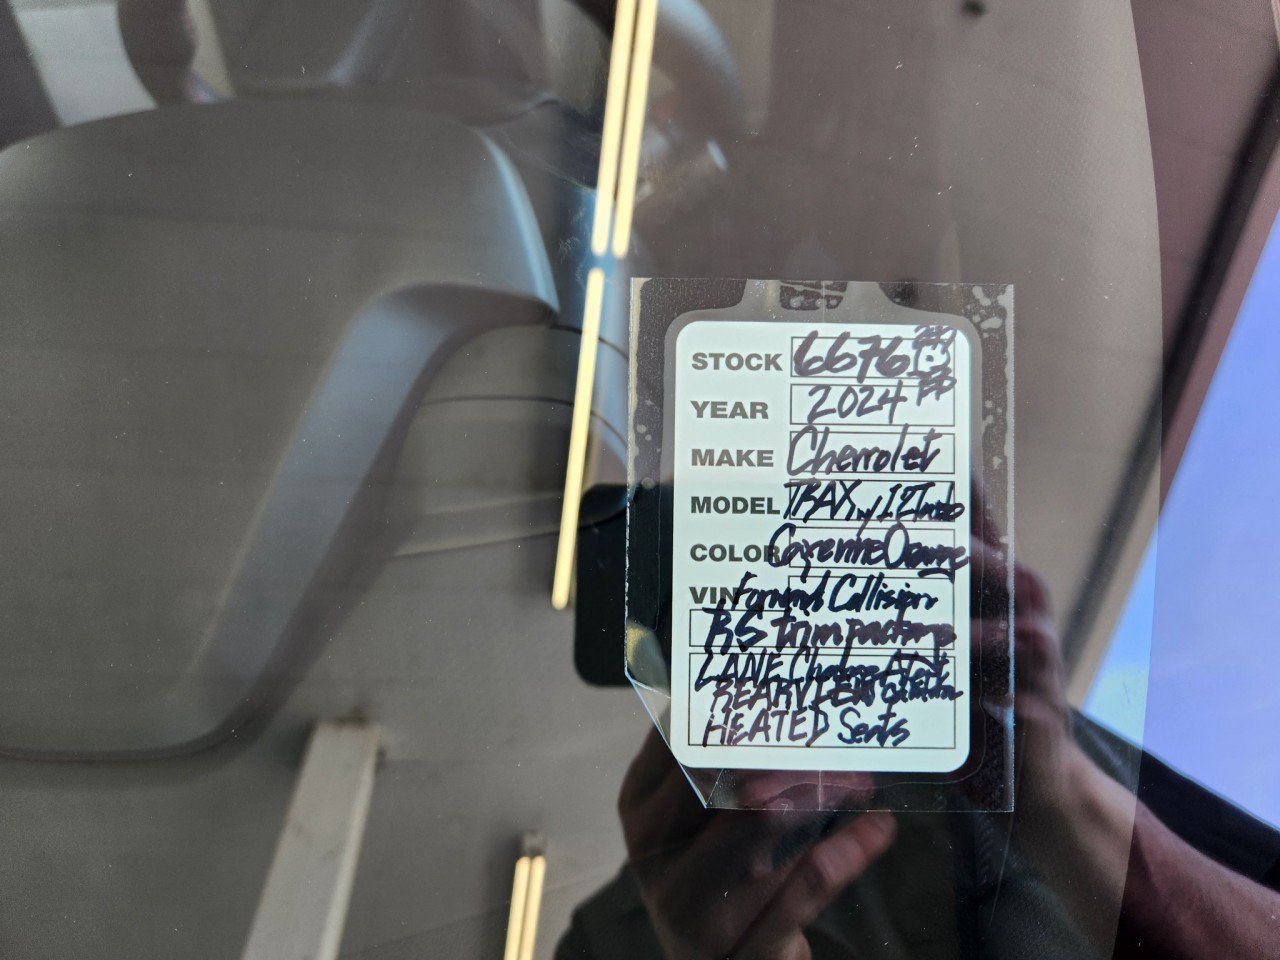 STOCK 6676B
YEAR 2024
MAKE Chevrolet
MODEL TRAX w/ 1.2 Turbo
COLOR Cayenne Orange
VIN Forward Collision
RS trim package
LANE Change Alert
REARVIEW
HEATED Seats